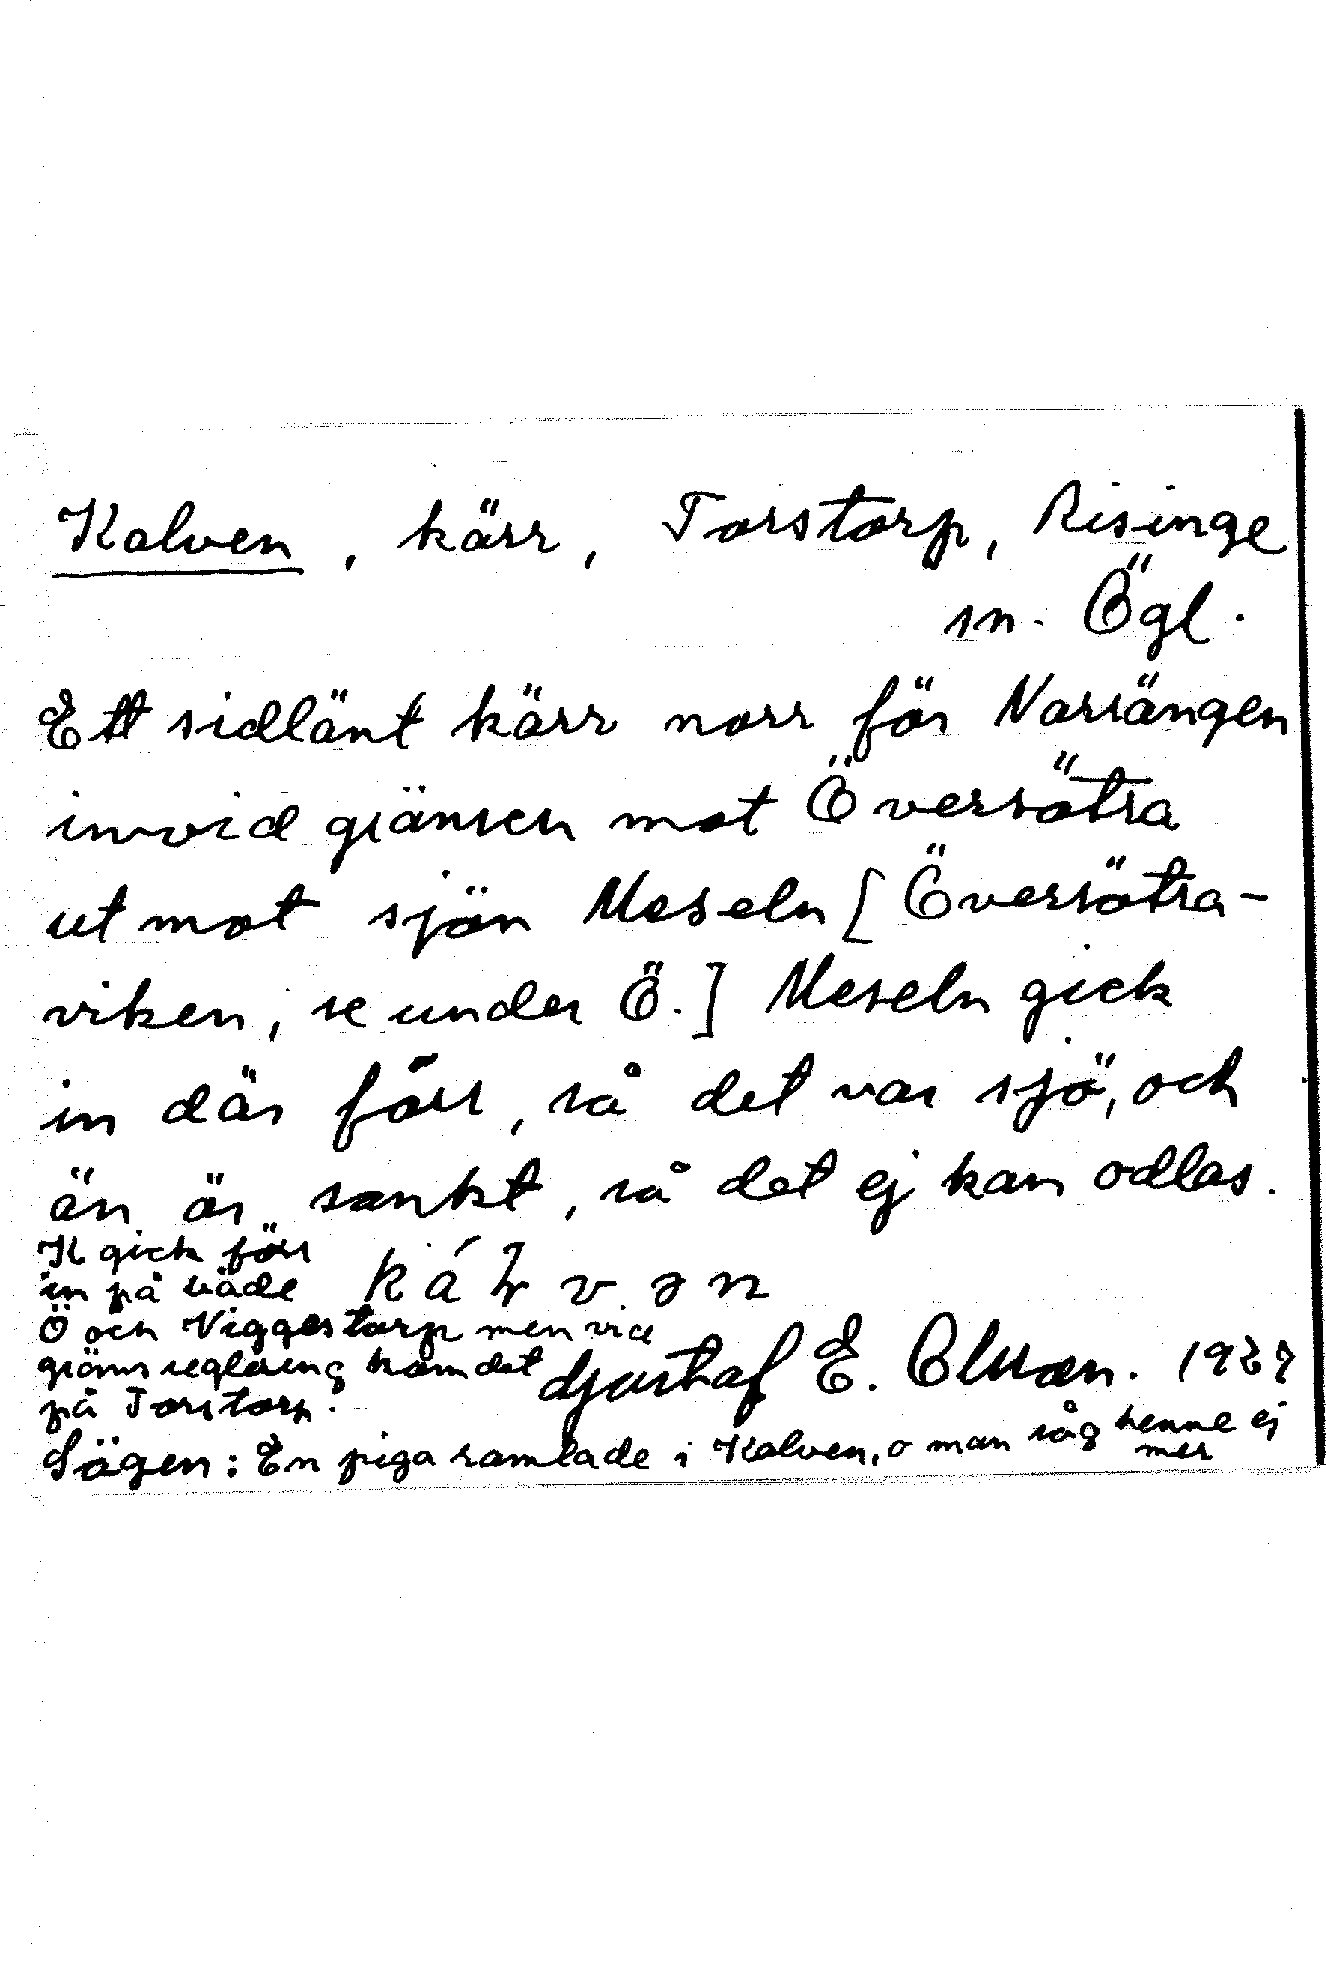 Kalven, kärr, Torstorp, Risinge
sn. Ögl.
Ett sidlänt kärr norr för Norrängen
invid gränsen mot Översötra
ut mot sjön Meseln [Översötra-
viken, se under Ö.] Meseln gick
in där förr, så det var sjö, och
än är sankt, så det ej kan odlas.
K gick förr
in på både
Ö och Viggestorp men vid
gränsreglering kom det
på Torstorp.
Gustaf E. Olsson. 1927
Sägen: En piga ramlade i Kalven, o man såg henne ej
mer